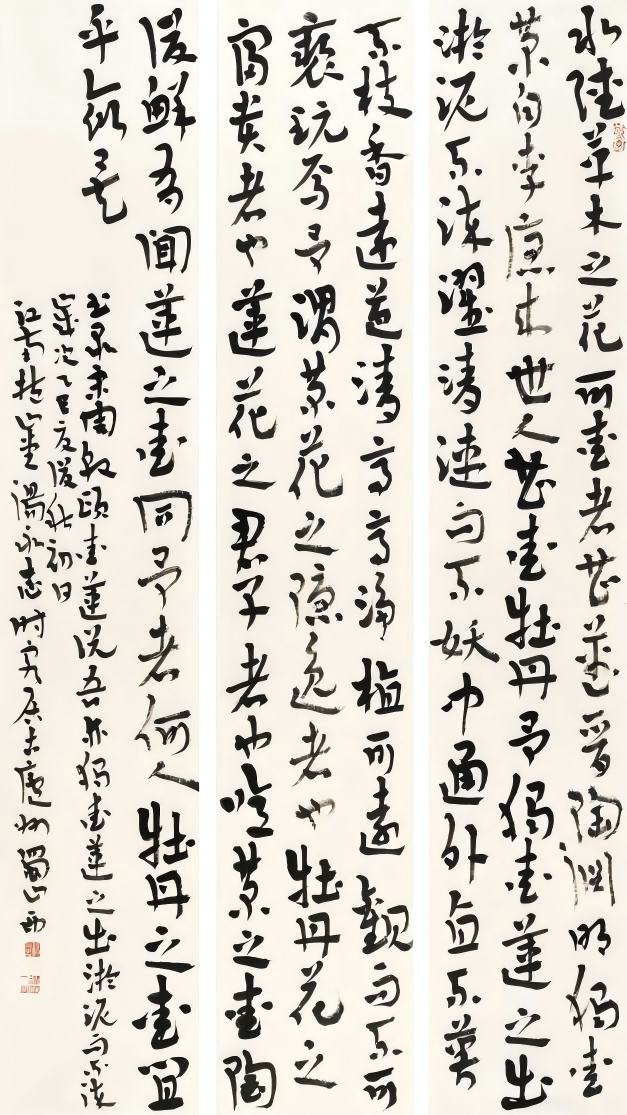 水陸草木之花可愛者甚蕃晉陶淵明獨愛
菊自李唐來世人甚愛牡丹予獨愛蓮之出
淤泥不染濯清漣而不妖中通外直不蔓
不枝香遠益清亭亭淨植可遠觀而不可
褻玩焉予謂菊花之隱逸者也牡丹花之
富貴者也蓮花之君子者也噫菊之愛陶
後鮮有聞蓮之愛同予者何人牡丹之愛宜
乎衆矣
書录宋周敦頤愛蓮說吾亦獨愛蓮之出淤泥而不染
歲次乙巳夏後秋初日
江南 湯永志時客居 廬州蜀山西